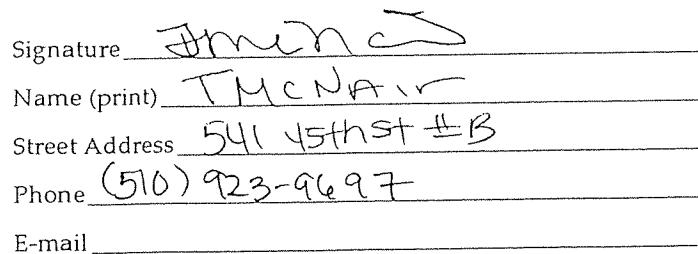 Signature
Name (print) T McNAir
Street Address 541 45th St #B
Phone (510) 923-9697
E-mail